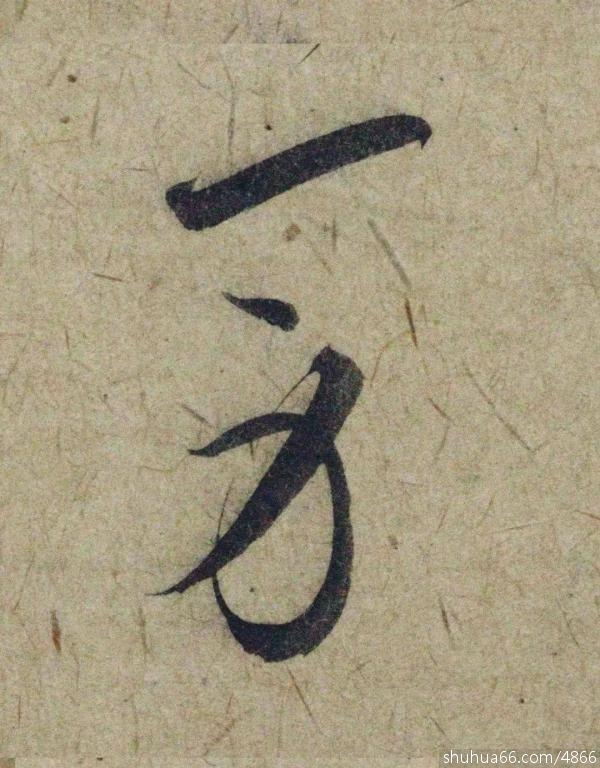 一方
shuhua66.com/4866